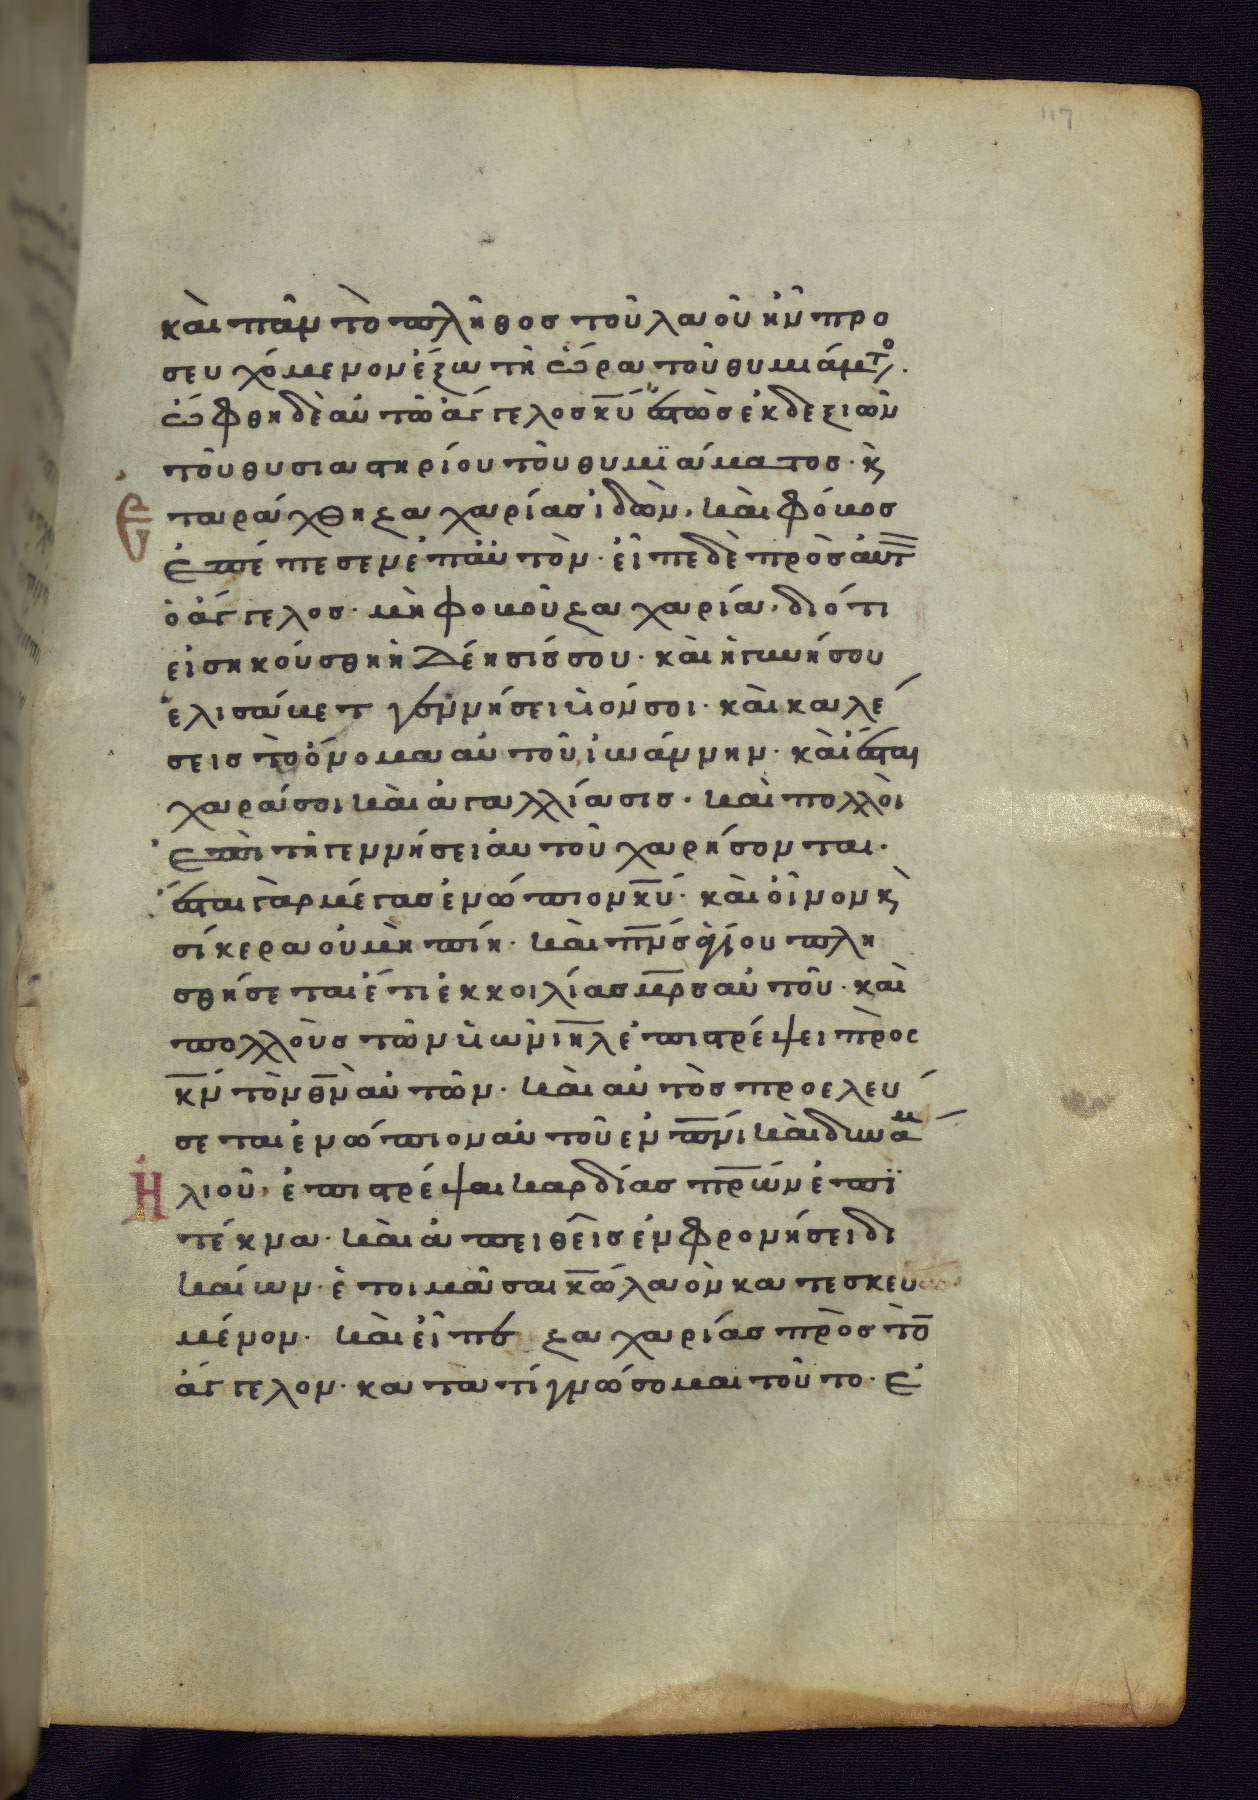 117
καὶ πᾶν τὸ πλῆθος τοῦ λαοῦ ἦν προ
σευχόμενον ἔξω τῆ ὥρα τοῦ θυμιάματο.
ὤφθη δὲ αὐτῶ ἄγγελος κ̅υ̅ ἑστὼς ἐκ δεξιῶν
τοῦ θυσιαστηρίου τοῦ θυμϊάματος· κ̀
ἐταράχθη ζαχαρίας ἰδὼν. καὶ φόβος
ἐπέπεσεν ἐπ αὐτὸν· εἶπε δὲ πρὸς αὐτ
ὁ ἄγγελος· μὴ φοβοῦ ζαχαρία, διότι
εἰσηκούσθη ἡ δέησίς σου· καὶ ἡ γυνή σου
ἐλισάβετ γεννήσει υἱόν σοι· καὶ καλέ
σεις τὸ ὄνομα αὐτοῦ, ἰωάννην· καὶ ἔσται
χαρά σοι καὶ ἀγαλλίασις· καὶ πολλοὶ
ἐπὶ τῆ γεννήσει αὐτοῦ χαρήσονται.
ἔσται γὰρ μέγας ἐνώπιον κ̅υ̅· καὶ οἶνον κ̀
σίκερα οὐ μὴ πίη· καὶ π̅ν̅ς ἁγίου πλη
σθήσεται ἔτι ἐκ κοιλίας μ̅ρ̅ς αὐτοῦ· καὶ
πολλοὺς τῶν υἱῶν ι̅η̅λ ἐπιστρέψει πρὸς
κ̅ν̅ τὸν θ̅ν̅ αὐτῶν· καὶ αὐτὸς προελεύ
σεται ἐνώπιον αὐτοῦ ἐν π̅ν̅ι καὶ δυνάμ
ἠλιοῦ, ἐπιστρέψαι καρδίας π̅ρ̅ων ἐπϊ
τέκνα· καὶ ἀπειθεῖς ἐν φρονήσει δι
καίων· ἑτοιμᾶσαι κ̅ω̅ λαὸν κατεσκευασ
μένον· καὶ εἶπε ζαχαρίας πρὸς τὸ̅
ἄγγελον· κατα τί γνώσομαι τοῦτο· ἐ